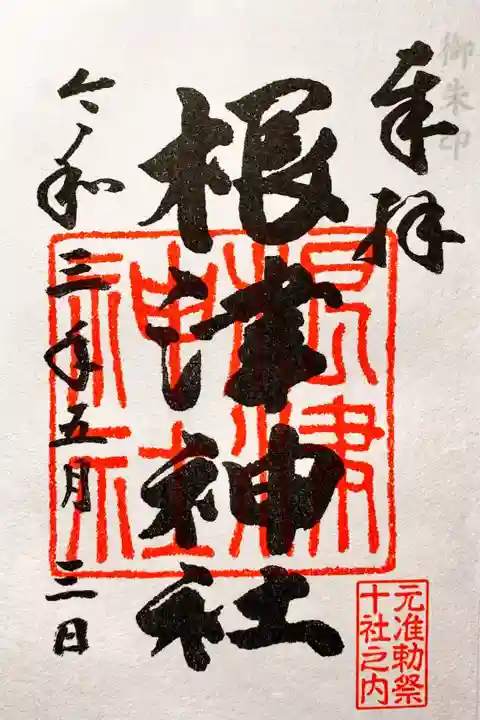 御朱印
奉拝
根津神社
令和三年五月三日
根津
神社
元准勅祭
十社之内